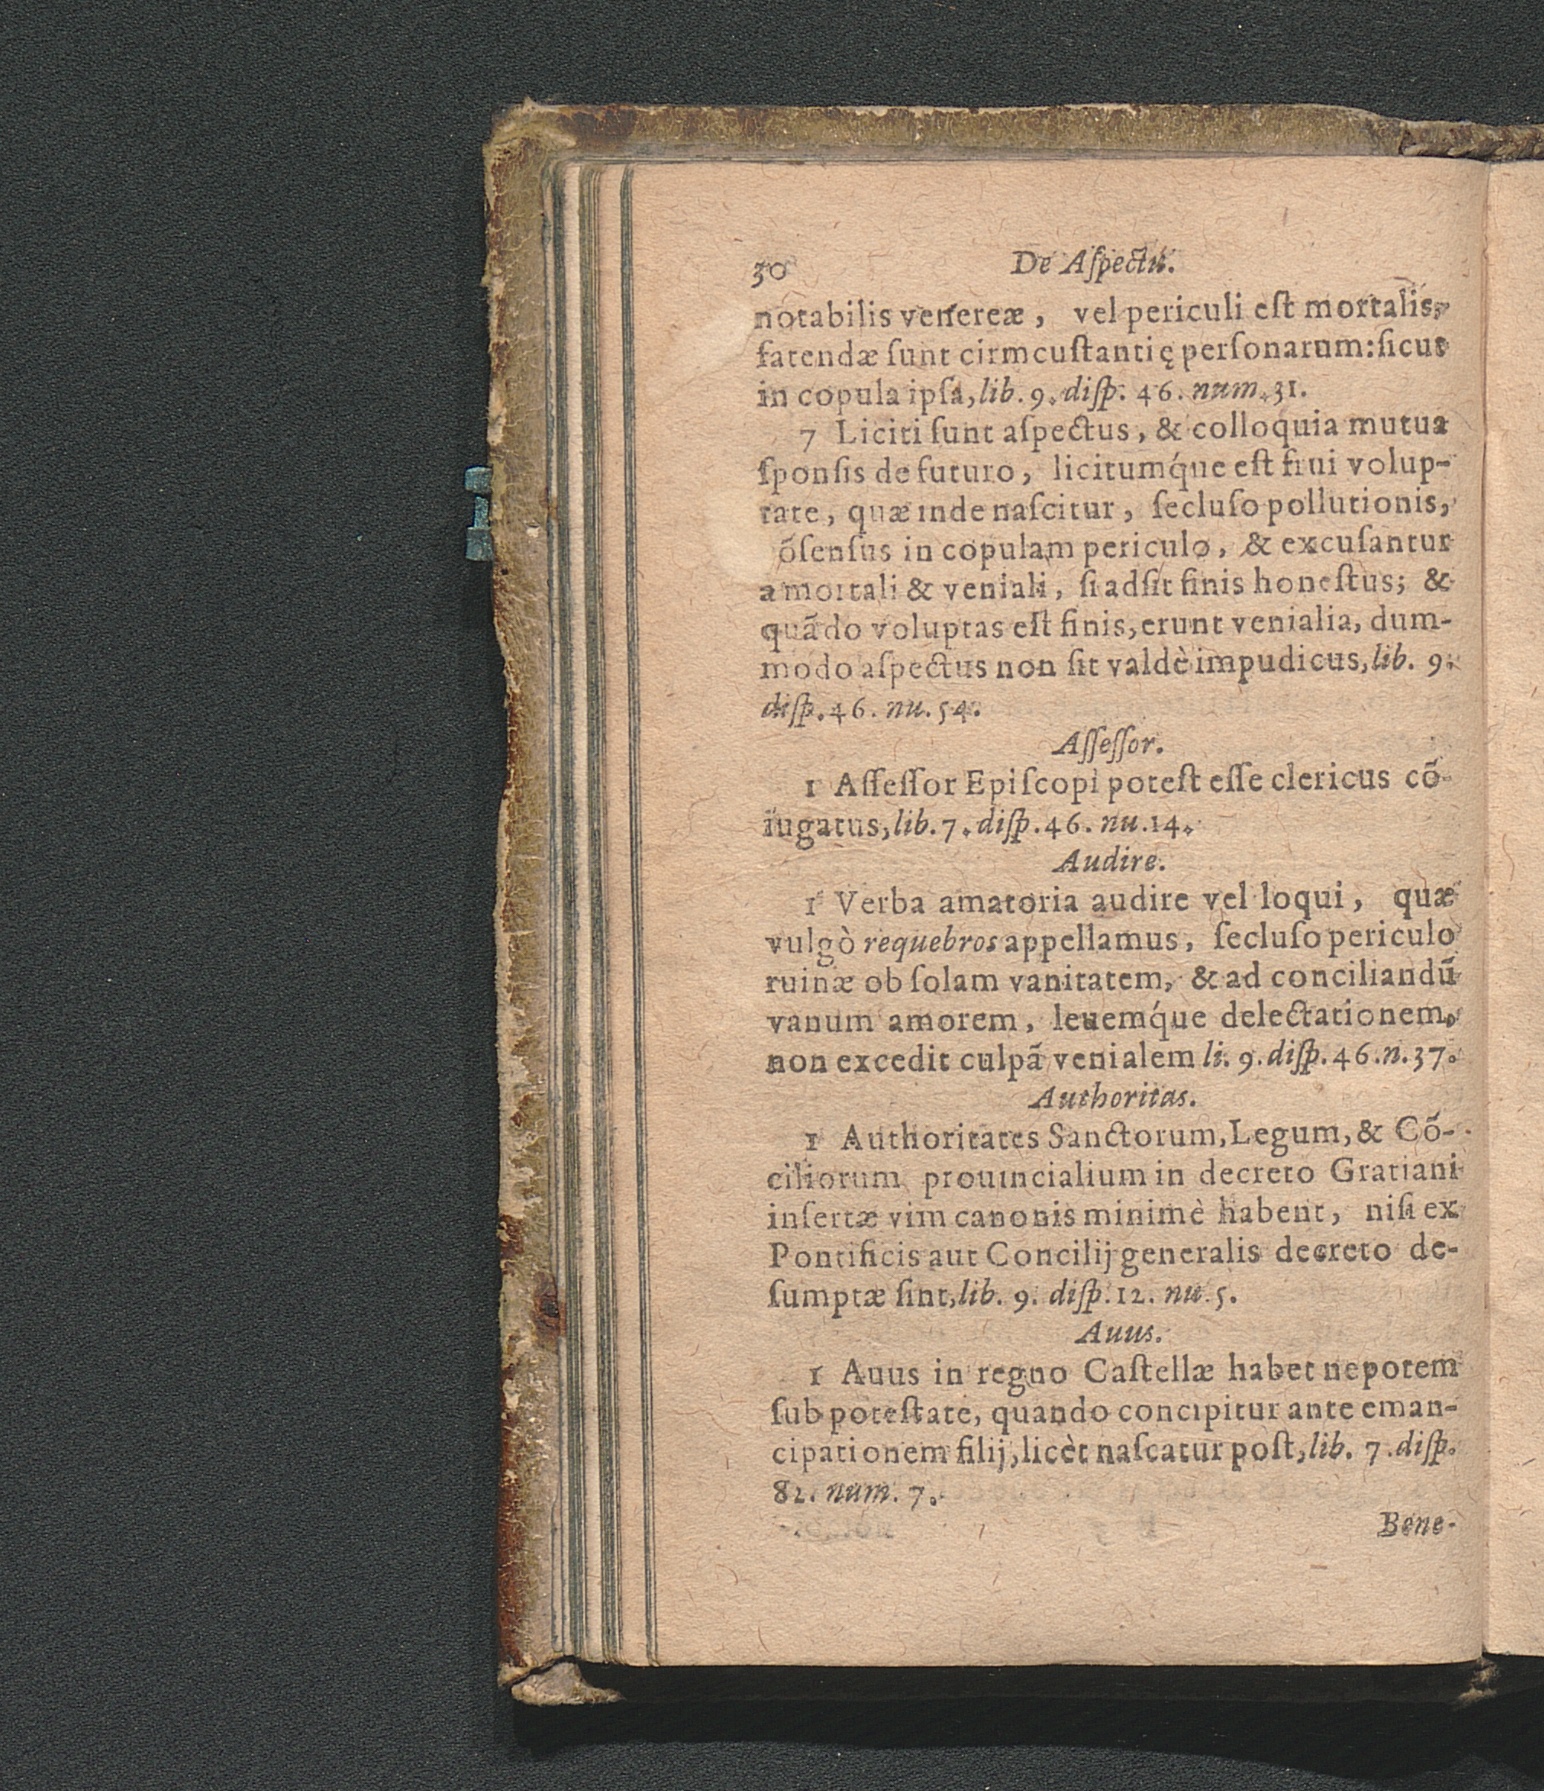 30 De Aſpectu.
notabilis venereæ, vel periculi eſt mortalis,
fatendæ ſunt cirmcuſtantię perſonarum: ſicut
in copula ipſa, lib. 9. diſp. 46. num. 31.
7 Liciti ſunt aſpectus, & colloquia mutua
ſponſis de futuro, licitumq́ue eſt frui volup-
tate, quæ inde naſcitur, ſecluſo pollutionis,
õſenſus in copulam periculo, & excuſantur
a mortali & veniali, ſi adſit finis honeſtus; &
quãdo voluptas eſt finis, erunt venialia, dum-
modo aſpectus non ſit valdè impudicus, lib. 9.
diſp. 46. nu. 54.
Aſſeſſor.
1 Aſſeſſor Epiſcopi poteſt eſſe clericus cõ-
iugatus, lib. 7. diſp. 46. nu. 14.
Audire.
1 Verba amatoria audire vel loqui, quæ
vulgò requebros appellamus, ſecluſo periculo
ruinæ ob ſolam vanitatem, & ad conciliandũ
vanum amorem, leuemq́ue delectationem,
non excedit culpã venialem li. 9. diſp. 46. n. 37.
Authoritas.
1 Authoritates Sanctorum, Legum, & Cõ-
ciliorum prouincialium in decreto Gratiani
inſertæ vim canonis minimè habent, niſi ex
Pontificis aut Concilij generalis decreto de-
ſumptæ ſint, lib. 9. diſp. 12. nu. 5.
Auus.
1 Auus in regno Caſtellæ habet nepotem
ſub poteſtate, quando concipitur ante eman-
cipationem filij, licèt naſcatur poſt, lib. 7. diſp.
82. num. 7.
Bene-